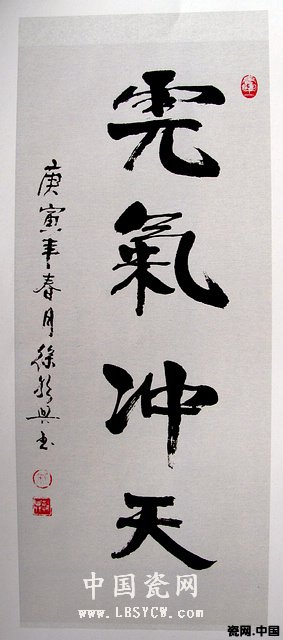 虎氣冲天
庚寅年春月徐興书
中国瓷网
www.LBSYCW.com
瓷网.中国